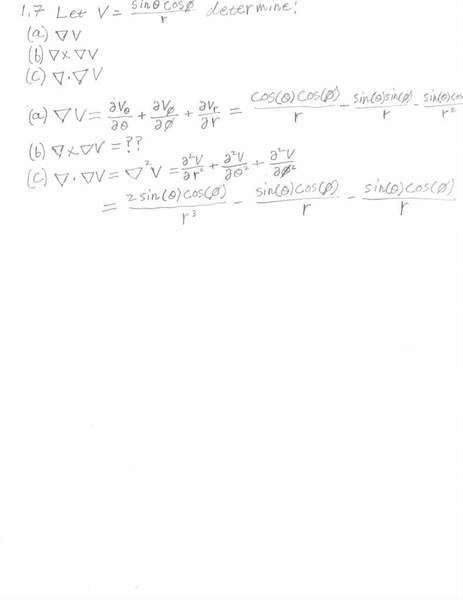 1.7 Let V = sinθ cosø / r determine:
(a) ∇V
(b) ∇×∇V
(c) ∇·∇V
(a) ∇V = ∂Vθ/∂θ + ∂Vø/∂ø + ∂Vr/∂r = cos(θ)cos(ø)/r - sin(θ)sin(ø)/r - sin(θ)co / r²
(b) ∇×∇V = ??
(c) ∇·∇V = ∇²V = ∂²V/∂r² + ∂²V/∂θ² + ∂²V/∂ø²
= 2sin(θ)cos(ø)/r³ - sin(θ)cos(ø)/r - sin(θ)cos(ø)/r